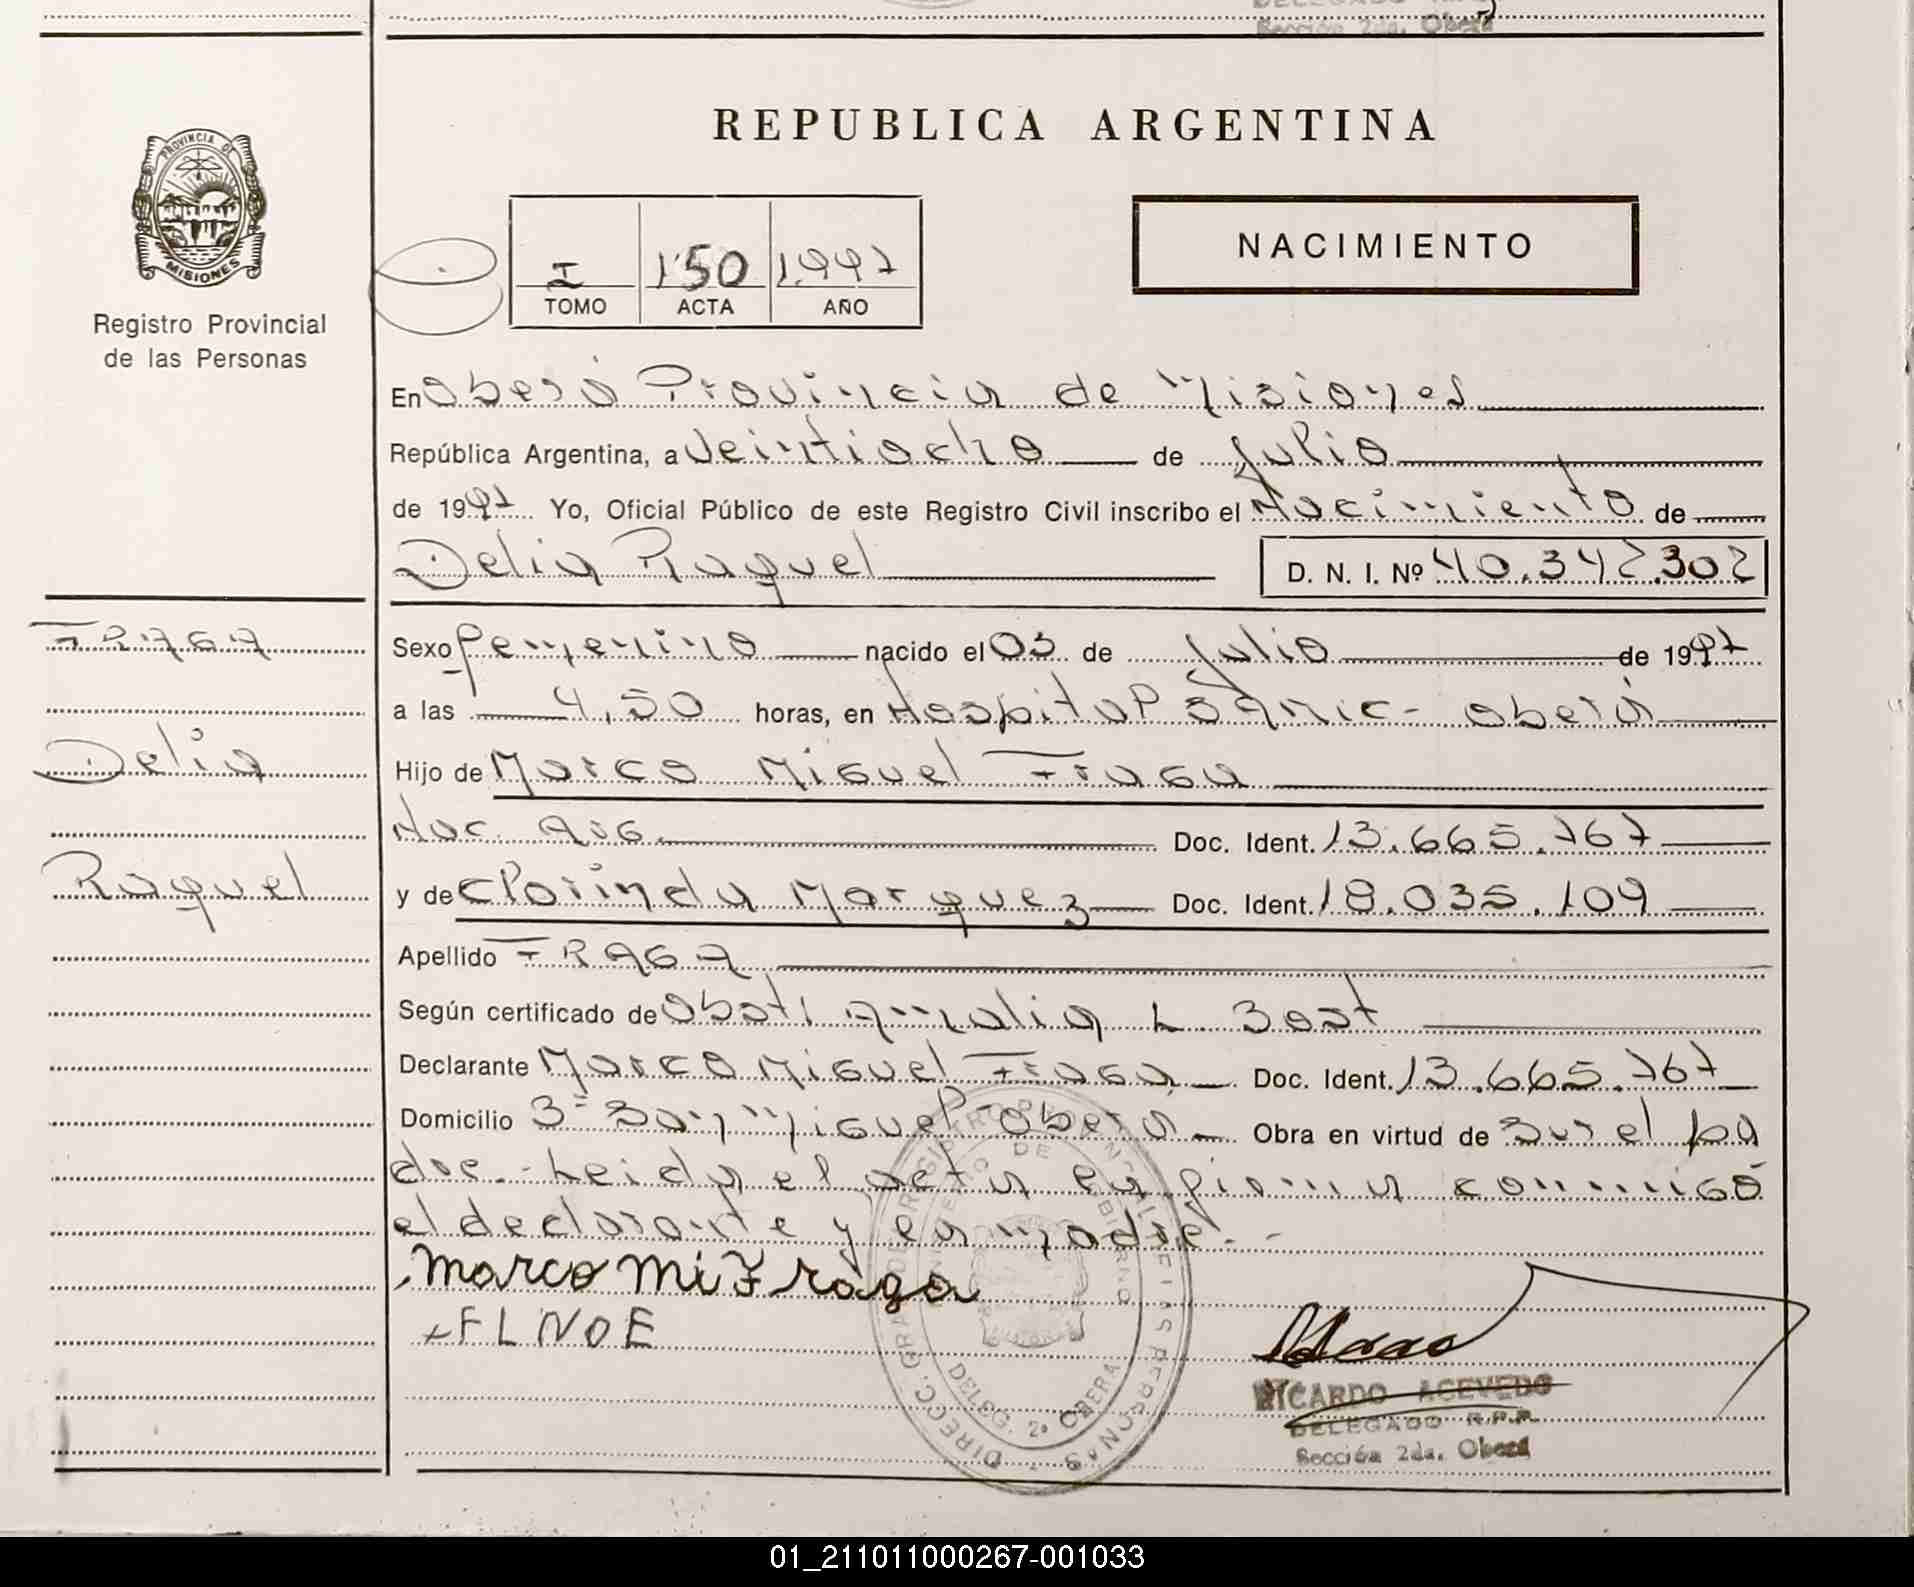 Sección 2da. Oberá
PROVINCIA DE
MISIONES
Registro Provincial
de las Personas
REPUBLICA ARGENTINA
I 150 1997
TOMO ACTA AÑO
NACIMIENTO
En Oberá Provincia de Misiones
República Argentina, a Veintiocho de Julio
de 1997 Yo, Oficial Público de este Registro Civil inscribo el Nacimiento de
Delia Raquel D. N. I. Nº 40.342.302
FRAGA
Delia
Raquel
Sexo femenino nacido el 03 de Julio de 1997
a las 4,50 horas, en Hospital SAMIC - Oberá
Hijo de Marco Miguel Fraga
Nac. Arg. Doc. Ident. 13.665.767
y de Clorinda Marquez Doc. Ident. 18.035.109
Apellido FRAGA
Según certificado de Obst. Amalia L. Bast
Declarante Marco Miguel Fraga Doc. Ident. 13.665.767
Domicilio Bº San Miguel - Oberá Obra en virtud de Ser el pa
dre.- Leida el acta la firma conmigo
el declarante y la madre.-
Marco Mi Fraga
DIRECC. GRAL. DE REGISTRO PROVINCIAL DE LAS PERSONAS
DELEG. 2ª OBERA
RICARDO ACEVEDO
DELEGADO R.P.P.
Sección 2da. Oberá
01_211011000267-001033